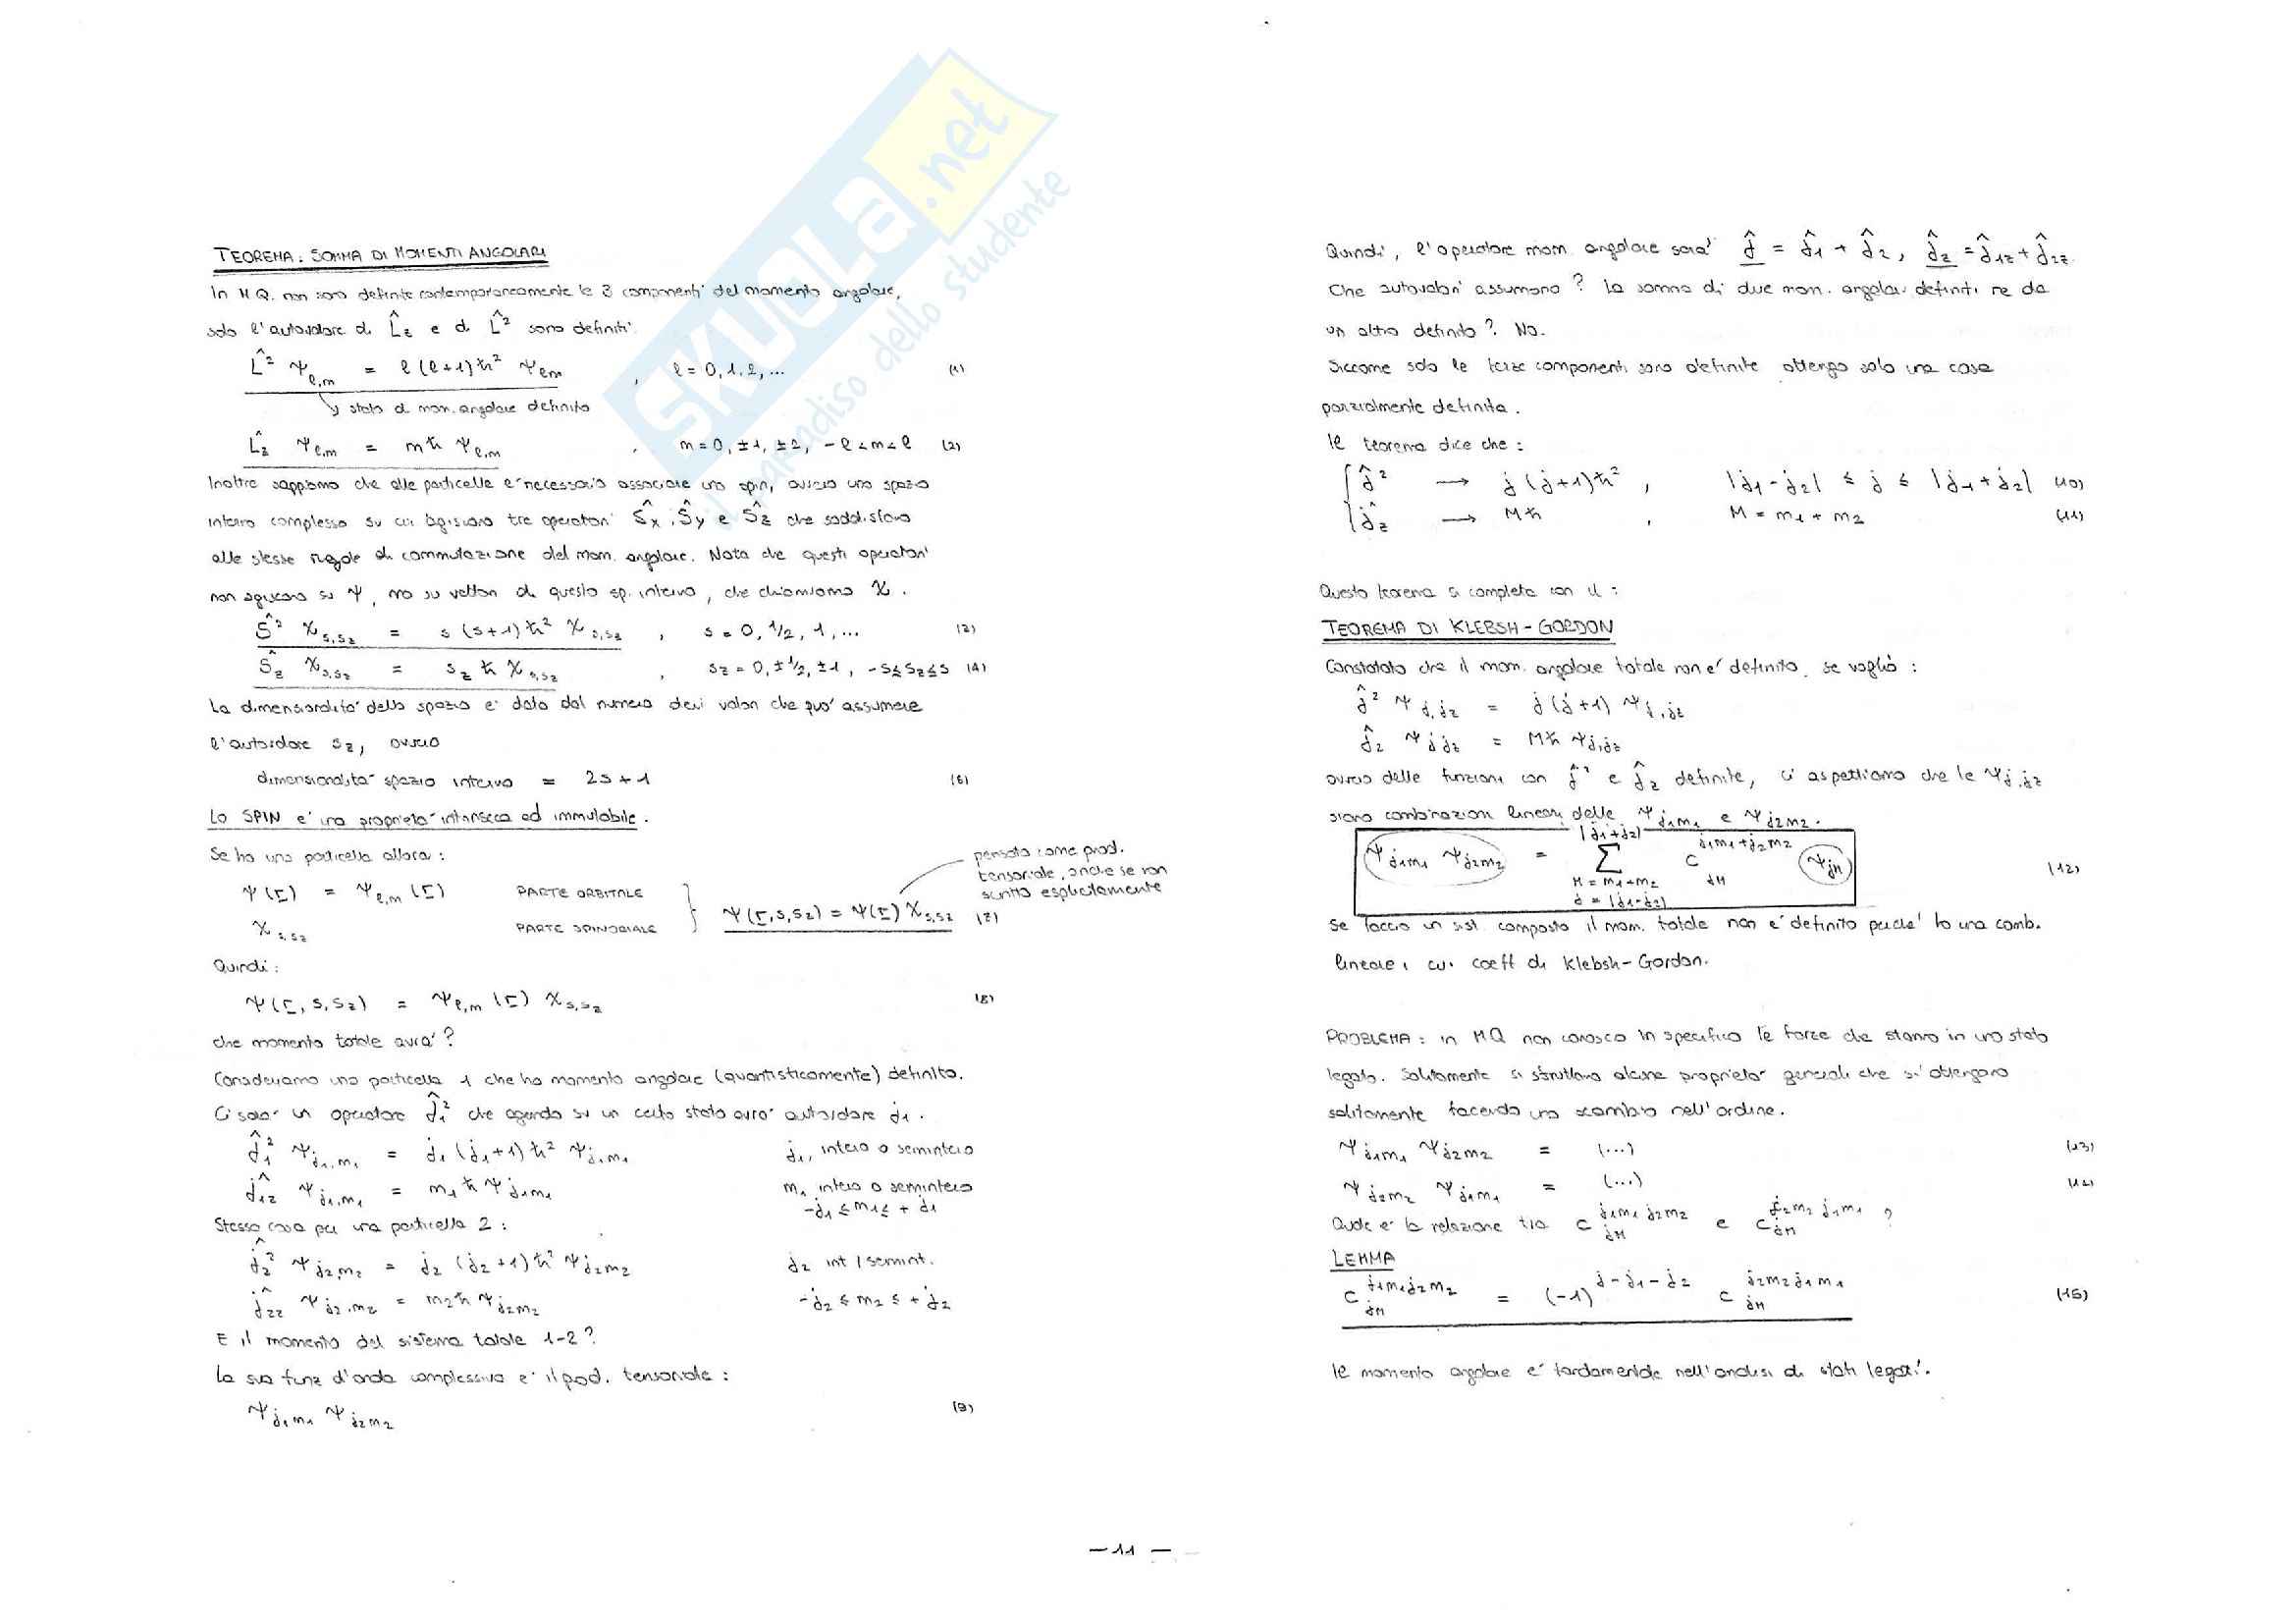 SKUOLA.net
il paradiso dello studente
TEOREMA: SOMMA DI MOMENTI ANGOLARI
In MQ. non sono definite contemporaneamente le 3 componenti del momento angolare,
solo l'autovalore di L̂z e di L̂² sono definiti
L̂² Ψℓ,m = ℓ(ℓ+1)ħ² Ψℓm , ℓ = 0, 1, 2, ... (1)
↳ stato di mom. angolare definito
L̂z Ψℓ,m = mħ Ψℓ,m , m = 0, ±1, ±2, -ℓ ≤ m ≤ ℓ (2)
Inoltre sappiamo che alle particelle e' necessario associare uno spin, ovvero uno spazio
interno complesso su cui agiscono tre operatori Ŝx, Ŝy e Ŝz che soddisfano
alle stesse regole di commutazione del mom. angolare. Nota che questi operatori
non agiscono su Ψ, ma su vettori di questo sp. interno, che chiamiamo χ.
Ŝ² χs,sz = s(s+1)ħ² χs,sz , s = 0, 1/2, 1, ... (3)
Ŝz χs,sz = sz ħ χs,sz , sz = 0, ±1/2, ±1, -s ≤ sz ≤ s (4)
La dimensionalita' dello spazio e' data dal numero dei valori che puo' assumere
l'autovalore sz, ovvero
dimensionalita' spazio interno = 2s+1 (6)
Lo SPIN e' una proprieta' intrinseca ed immutabile.
Se ho una particella allora:
Ψ(r) = Ψℓ,m(r) PARTE ORBITALE
χs,sz PARTE SPINORIALE
Ψ(r,s,sz) = Ψ(r) χs,sz
pensato come prod.
tensoriale, anche se non
scritto esplicitamente
Quindi:
Ψ(r,s,sz) = Ψℓ,m(r) χs,sz (8)
che momento totale avra'?
Consideriamo una particella 1 che ha momento angolare (quantisticamente) definito.
Ci sara' un operatore ĵ₁² che agendo su un certo stato avra' autovalore j₁.
ĵ₁² Ψj₁,m₁ = j₁(j₁+1)ħ² Ψj₁m₁ j₁, intero o semintero
ĵ₁z Ψj₁,m₁ = m₁ħ Ψj₁m₁ m₁ intero o semintero
-j₁ ≤ m₁ ≤ +j₁
Stessa cosa per una particella 2:
ĵ₂² Ψj₂,m₂ = j₂(j₂+1)ħ² Ψj₂m₂ j₂ int/semint.
ĵ₂z Ψj₂,m₂ = m₂ħ Ψj₂m₂ -j₂ ≤ m₂ ≤ +j₂
E il momento del sistema totale 1-2?
La sua funz d'onda complessiva e' il prod. tensoriale:
Ψj₁m₁ Ψj₂m₂ (9)
Quindi, l'operatore mom. angolare sara' ĵ = ĵ₁ + ĵ₂, ĵz = ĵ₁z + ĵ₂z.
Che autovalori assumono? la somma di due mom. angolari definiti ne da
un altro definito? No.
Siccome solo le terze componenti sono definite ottengo solo una cosa
parzialmente definita.
Il teorema dice che:
ĵ² → j(j+1)ħ² , |j₁-j₂| ≤ j ≤ |j₁+j₂| (10)
ĵz → Mħ , M = m₁+m₂ (11)
Questo teorema si completa con il:
TEOREMA DI KLEBSH-GORDON
Constatato che il mom. angolare totale non e' definito, se voglio:
ĵ² Ψj,jz = j(j+1) Ψj,jz
ĵz Ψjjz = Mħ Ψj,jz
ovvero delle funzioni con ĵ² e ĵz definite, ci aspettiamo che le Ψj,jz
siano combinazioni lineari delle Ψj₁m₁ e Ψj₂m₂.
Ψj₁m₁ Ψj₂m₂ = Σ (|j₁+j₂|; M=m₁+m₂, j=|j₁-j₂|) C jM ^ j₁m₁+j₂m₂ ΨjM (12)
Se faccio un sist. composto il mom. totale non e' definito perche' ho una comb.
lineare, cui coeff di Klebsh-Gordon.
PROBLEMA: in MQ non conosco in specifico le forze che stanno in uno stato
legato. Solitamente si sfruttano alcune proprieta' generali che si ottengono
solitamente facendo uno scambio nell'ordine.
Ψj₁m₁ Ψj₂m₂ = (...) (13)
Ψj₂m₂ Ψj₁m₁ = (...)
Quale e' la relazione tra C jM ^ j₁m₁j₂m₂ e C jM ^ j₂m₂j₁m₁ ?
LEMMA
C jM ^ j₁m₁j₂m₂ = (-1)^ j-j₁-j₂ C jM ^ j₂m₂j₁m₁ (15)
Il momento angolare e' fondamentale nell'analisi di stati legati.
— 11 —